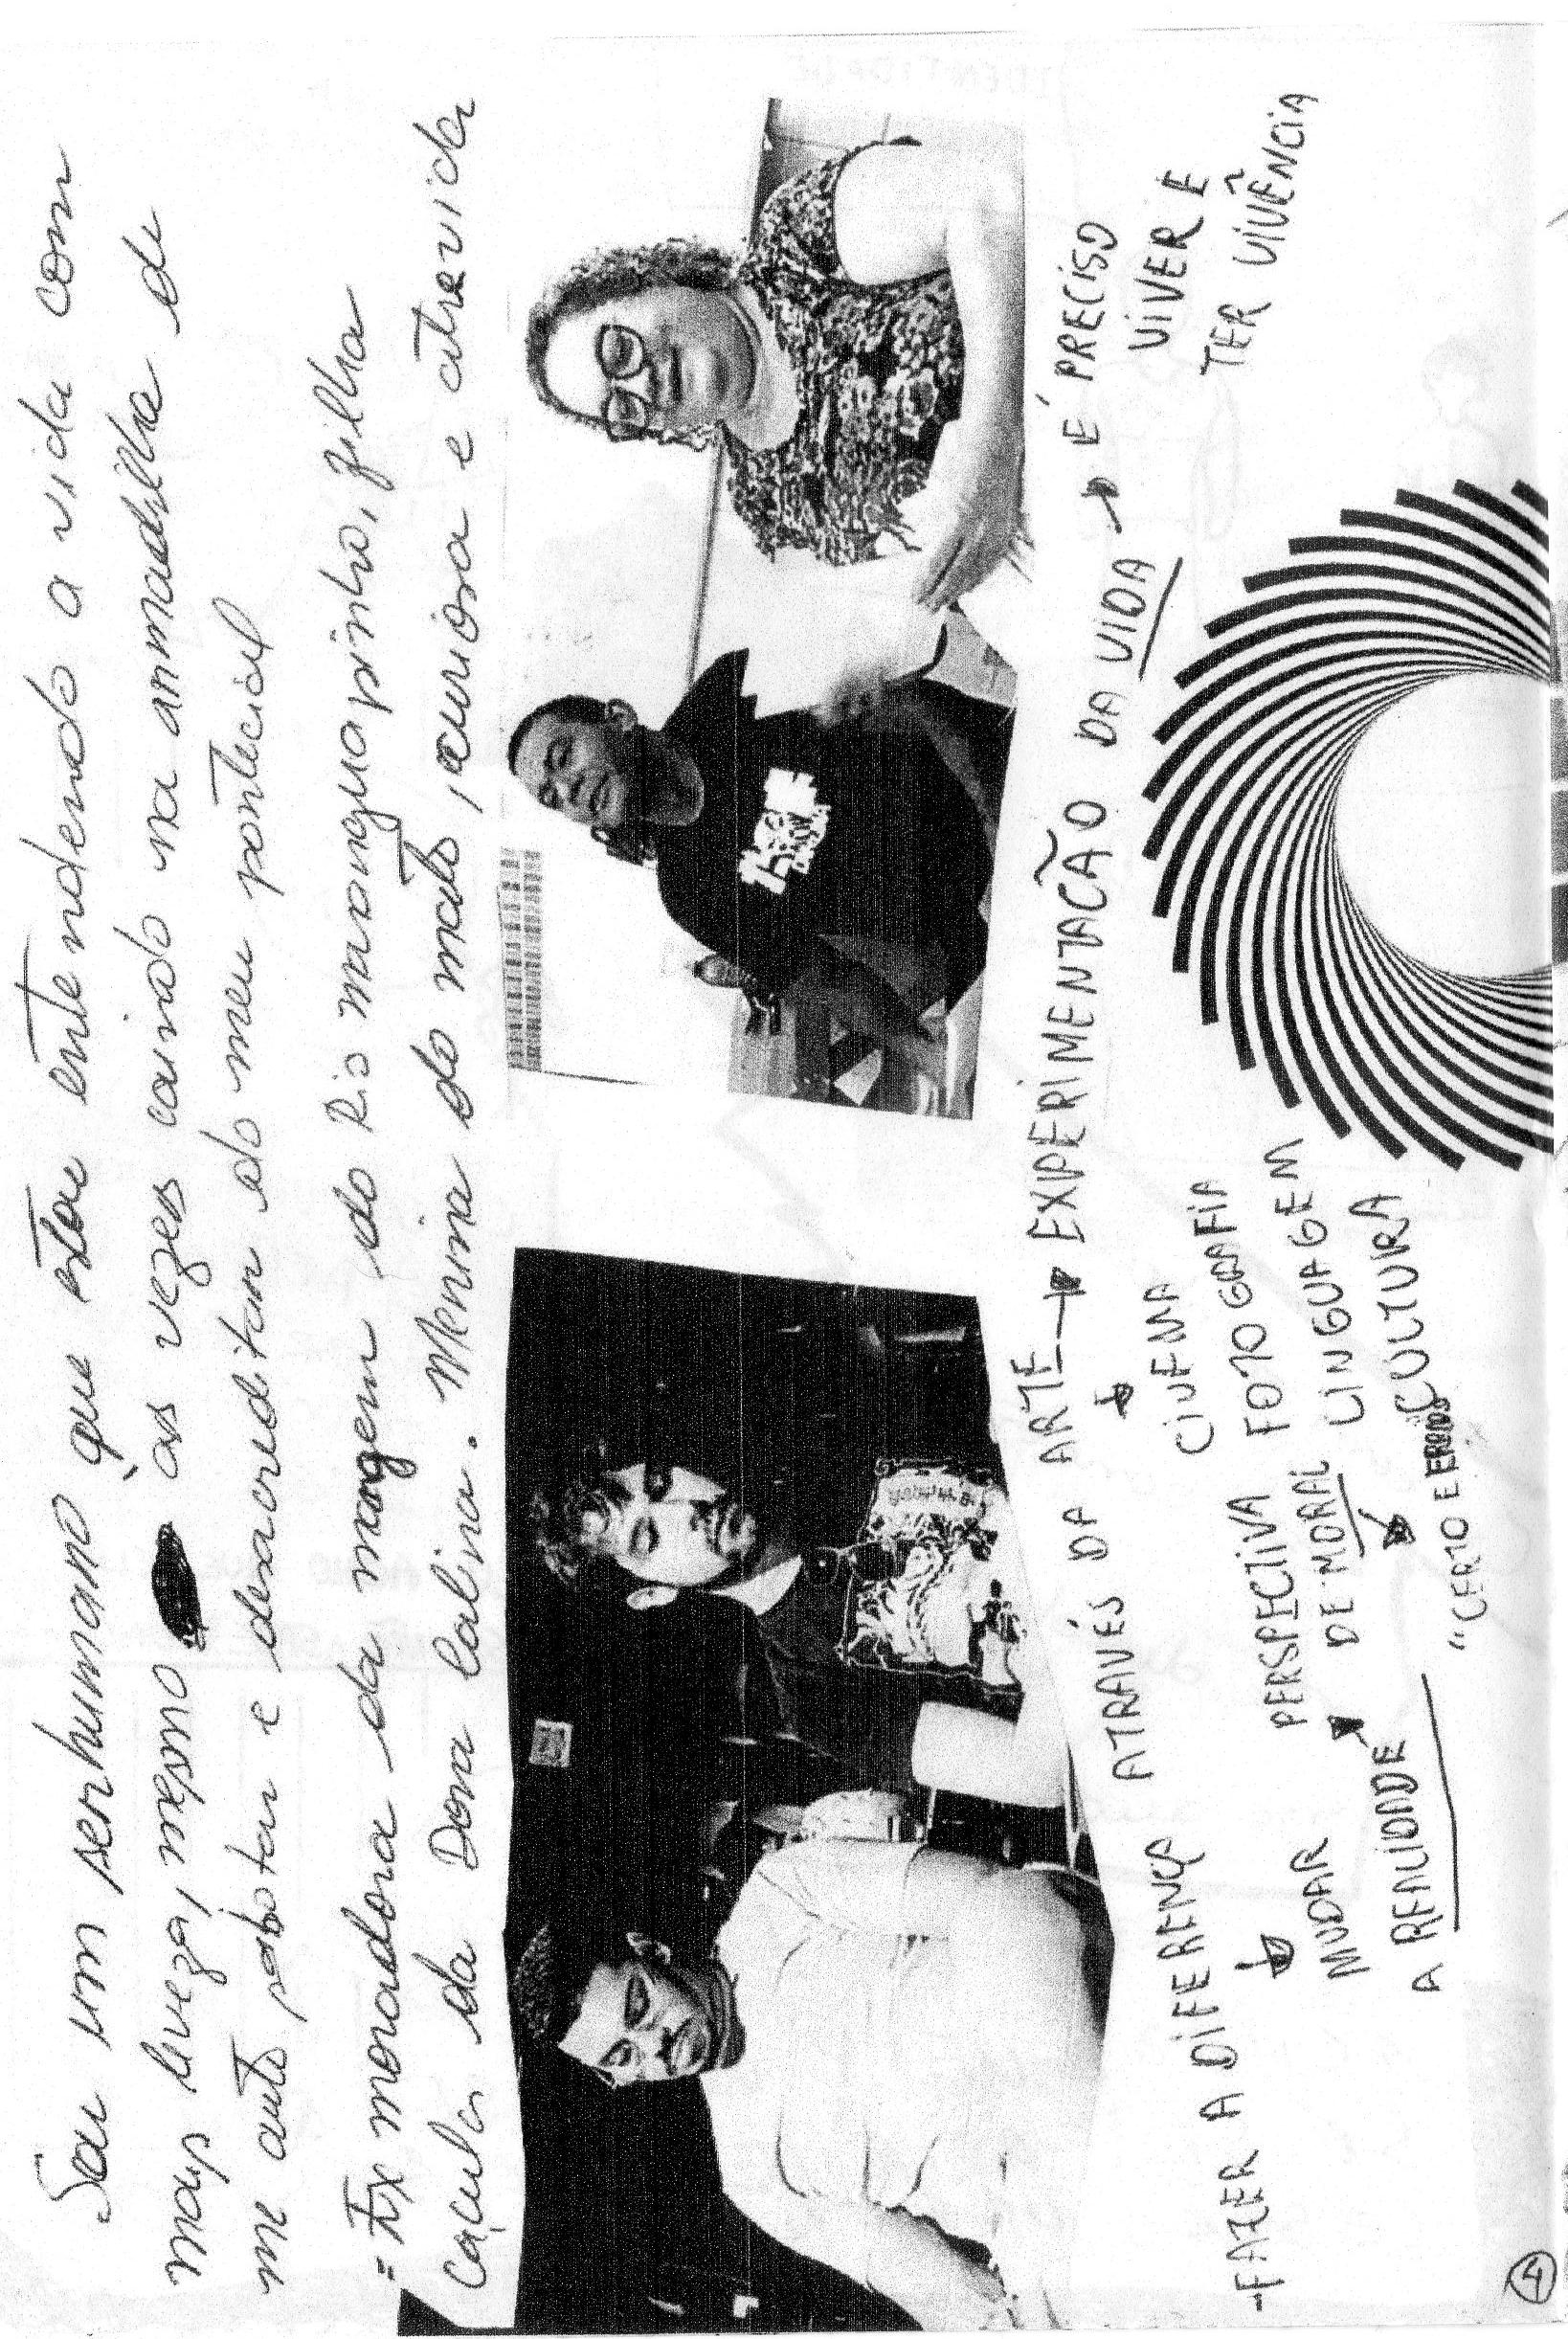 Sou um serhumano que estou entendendo a vida com
mais leveza, mesmo as vezes caindo na armadilha de
me auto sabotar e desacreditar do meu pontecial
= Ex moradora da margem do Rio maranguapinho, filha
caçula da Dona Calina. Menina do mato, curiosa e atrevida
-FAZER A DIFERENÇA ATRAVÉS DA ARTE → EXPERIMENTAÇÃO DA VIDA → É PRECISO
VIVER E
TER VIVÊNCIA
↓
MUDAR
A REALIDADE
PERSPECTIVA
DE MORAL
"CERTO E ERRADO"
↓
CINEMA
FOTOGRAFIA
LINGUAGEM
CULTURA
4